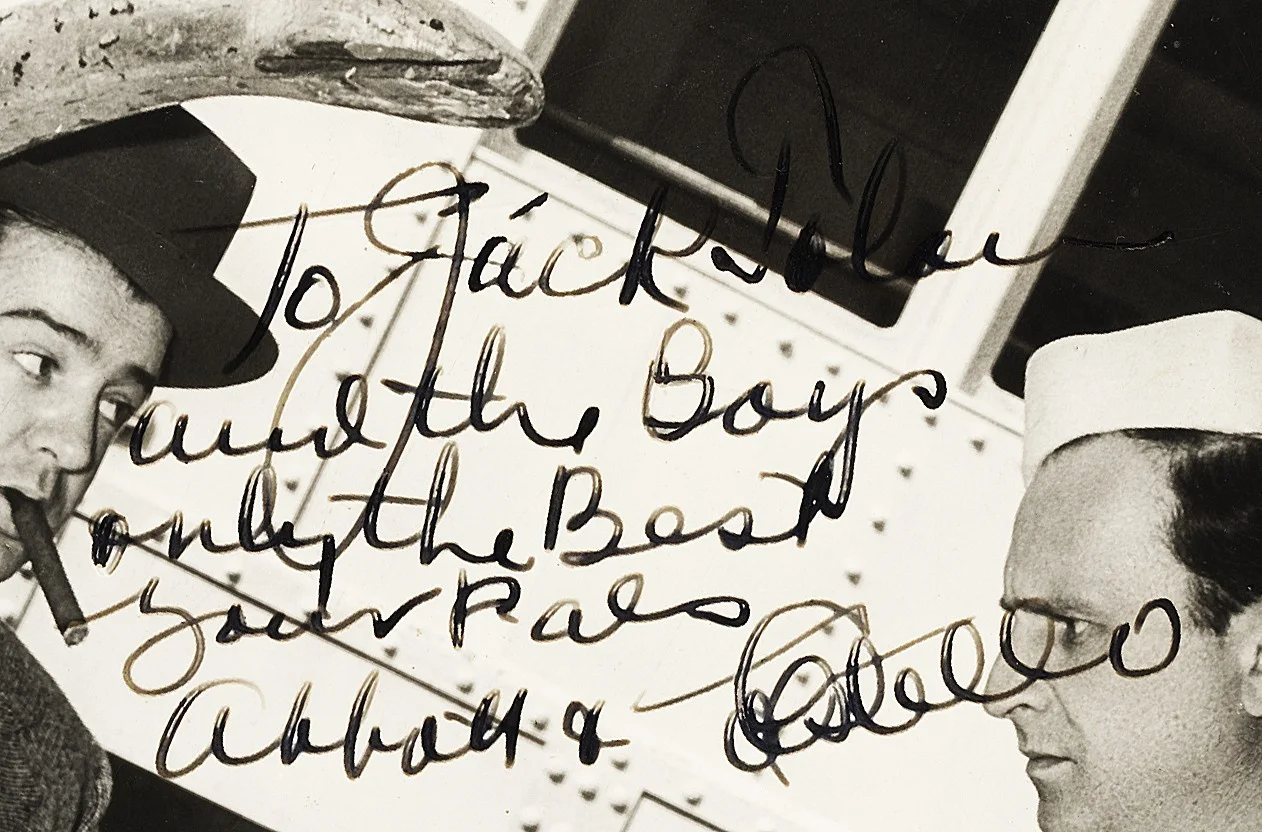 To Jack
and the Boys
only the Best
your Pals
Abbott & Costello